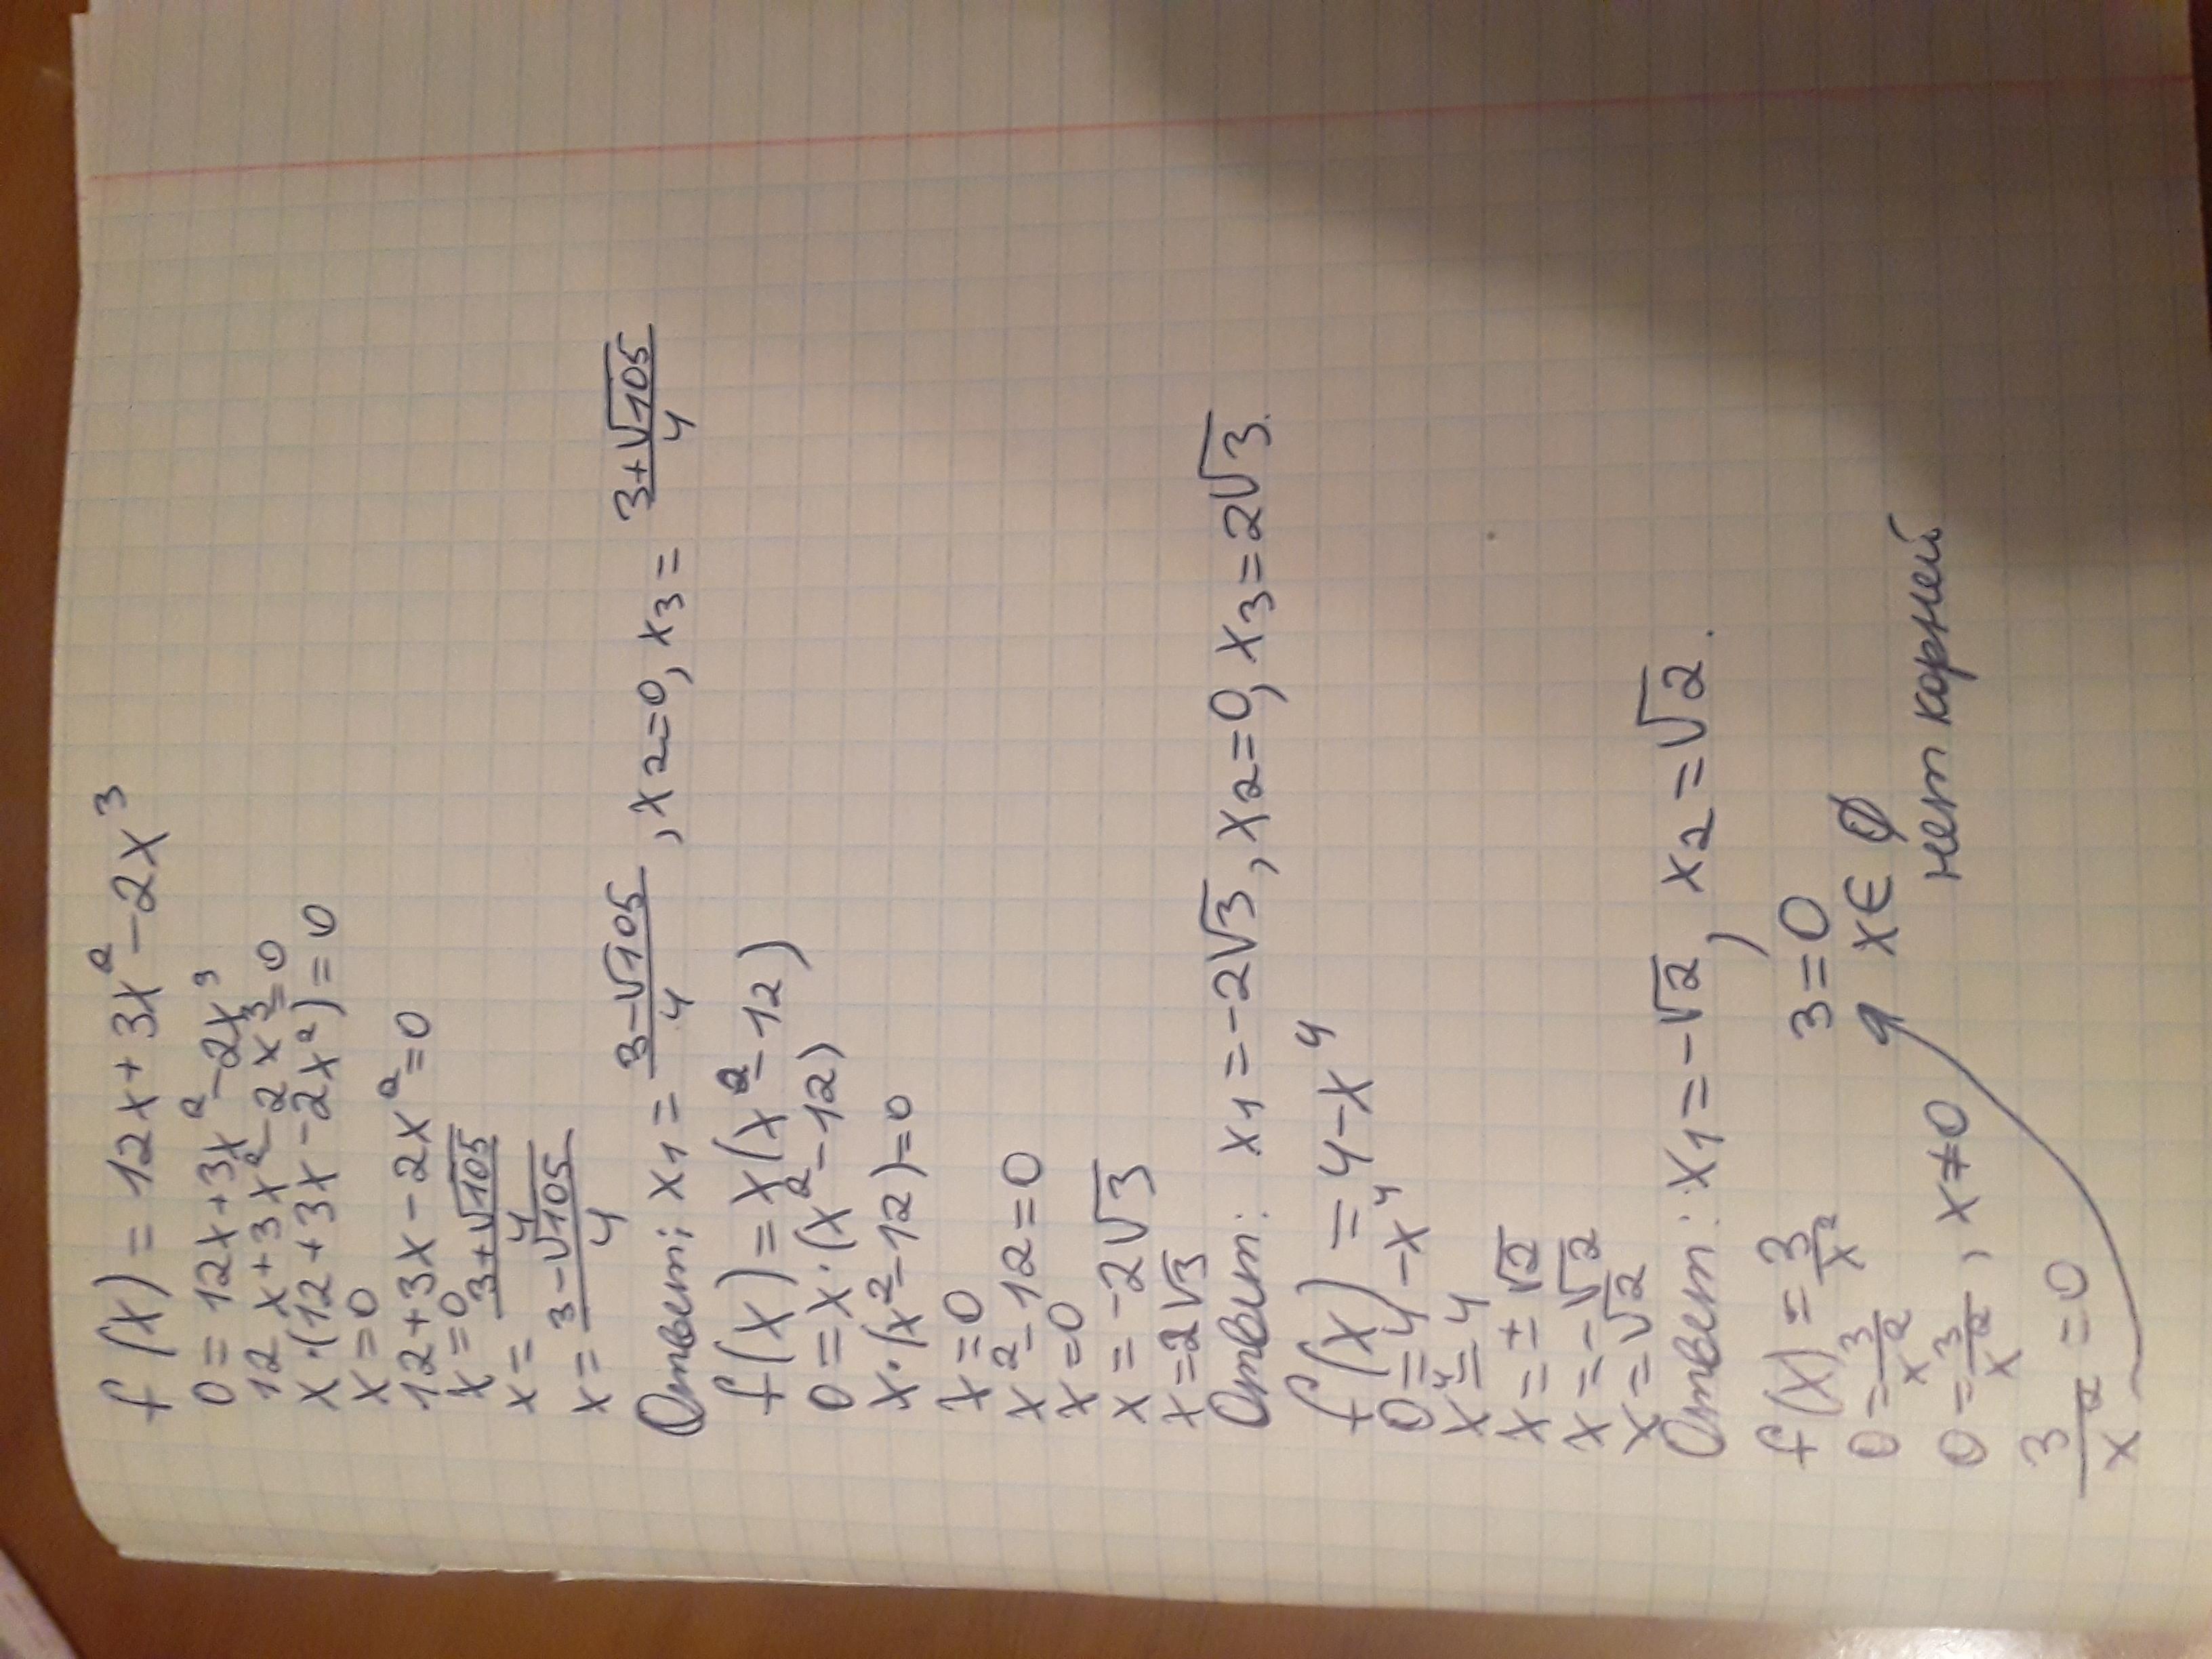 f(x) = 12x + 3x² - 2x³
0 = 12x + 3x² - 2x³
12x + 3x² - 2x³ = 0
x·(12 + 3x - 2x²) = 0
x = 0
12 + 3x - 2x² = 0
x = 0
x = (3+√105)/4
x = (3-√105)/4
Ответ: x1 = (3-√105)/4, x2=0, x3 = (3+√105)/4
f(x) = x(x² - 12)
0 = x·(x² - 12)
x·(x² - 12) = 0
x = 0
x² - 12 = 0
x = 0
x = -2√3
x = 2√3
Ответ: x1 = -2√3, x2 = 0, x3 = 2√3.
f(x) = 4 - x⁴
0 = 4 - x⁴
x⁴ = 4
x = ± √2
x = -√2
x = √2
Ответ: x1 = -√2, x2 = √2.
f(x) = 3/x²
0 = 3/x²
0 = 3/x², x ≠ 0
3/x² = 0
3 = 0
x ∈ ∅
нет корней